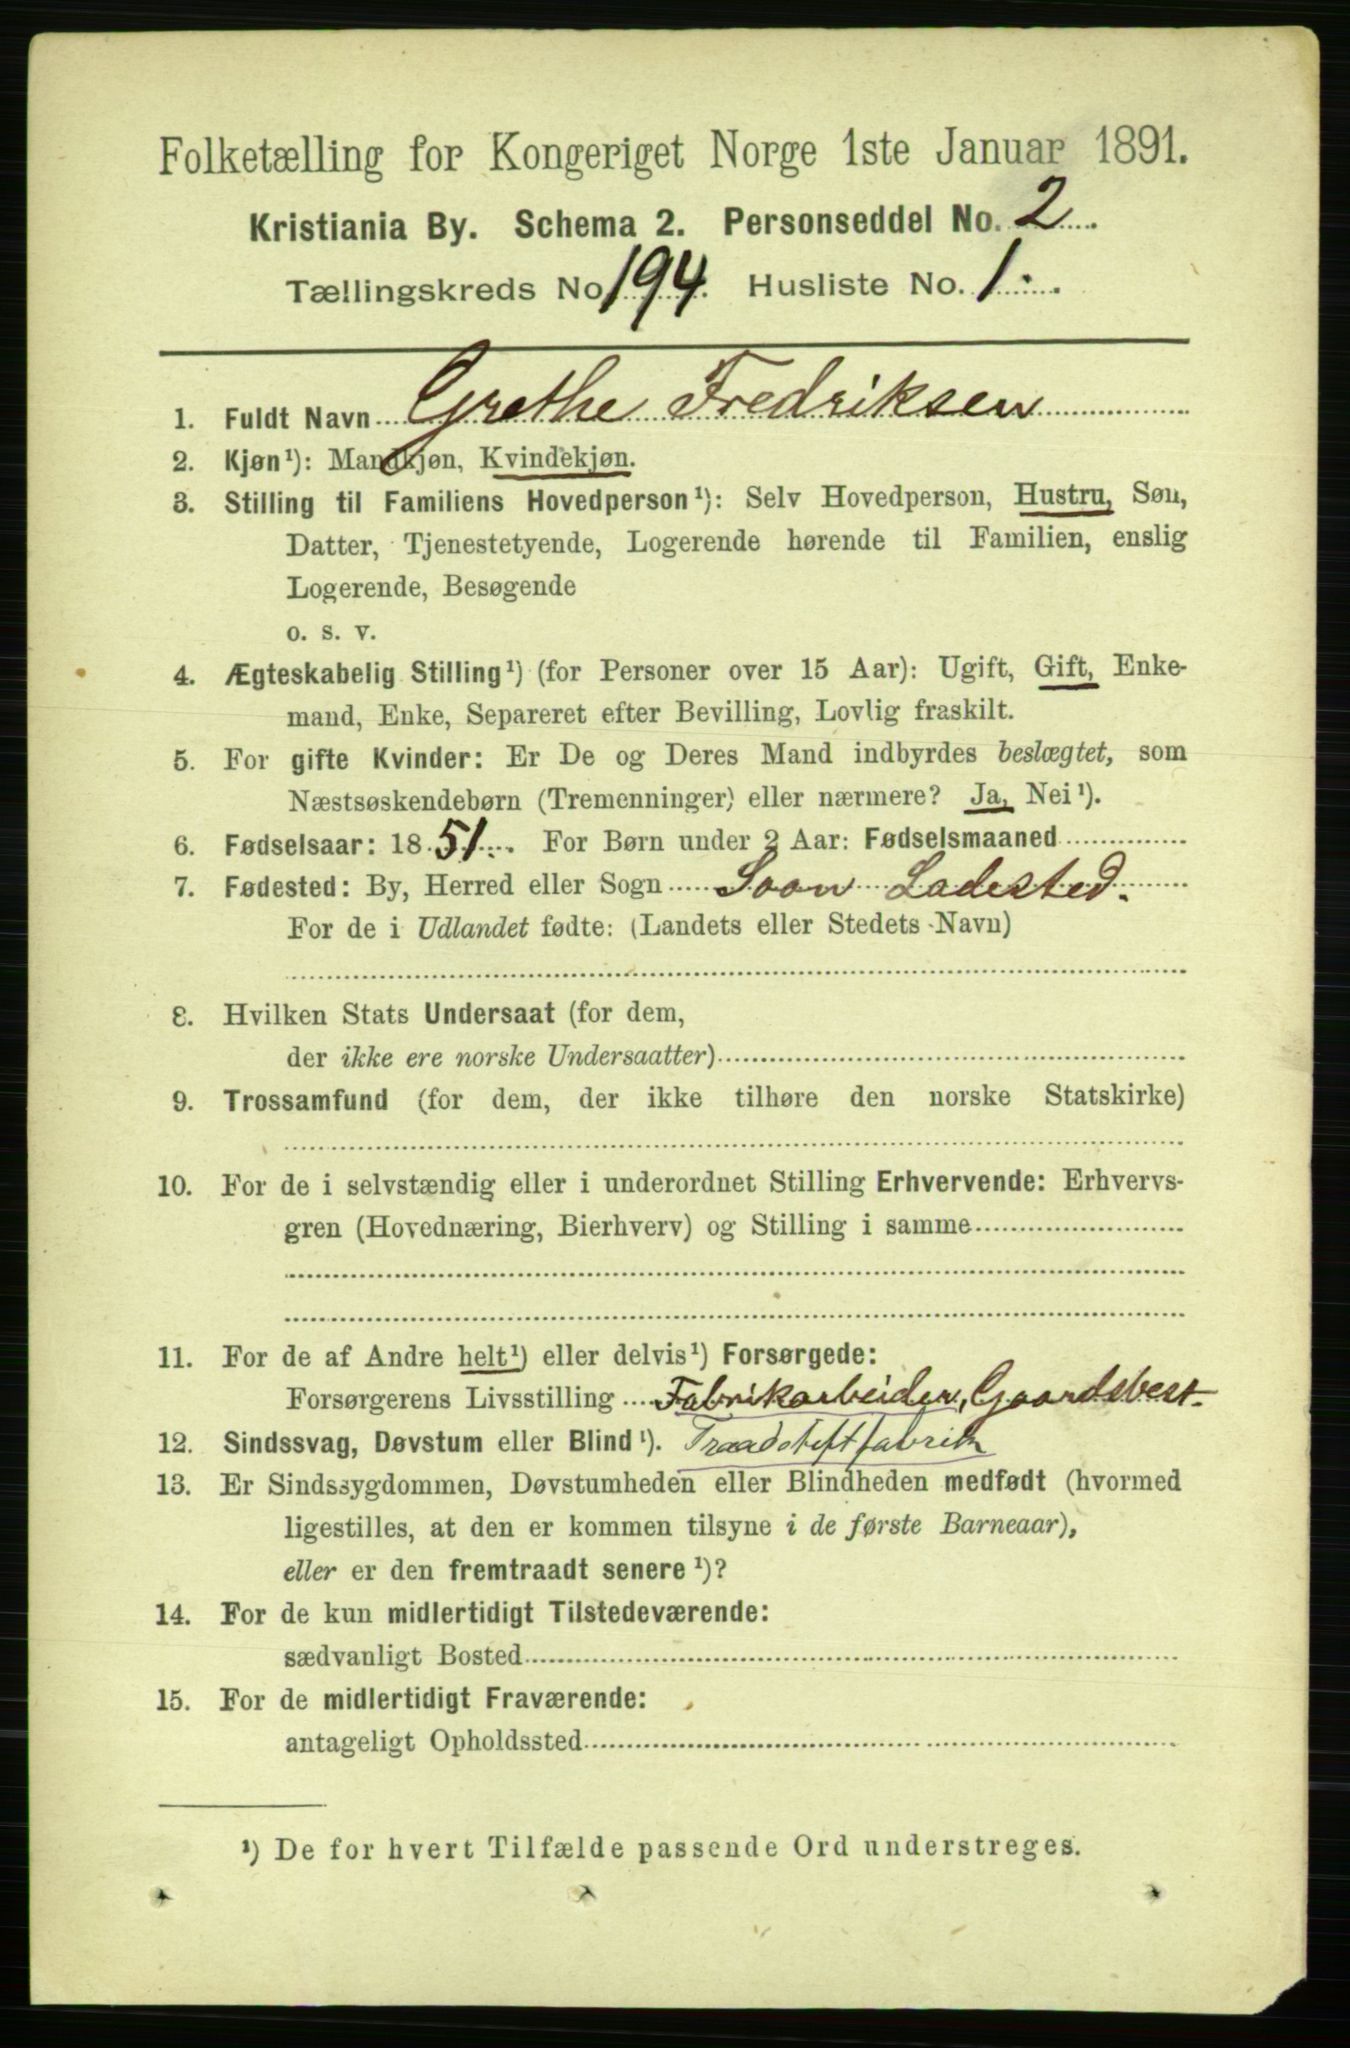 Folketælling for Kongeriget Norge 1ste Januar 1891.
Kristiania By. Schema 2. Personseddel No. 2
Tællingskreds No 194. Husliste No. 1.
1. Fuldt Navn Grethe Fredriksen
2. Kjøn¹): Mandkjøn, Kvindekjøn.
3. Stilling til Familiens Hovedperson¹): Selv Hovedperson, Hustru, Søn,
Datter, Tjenestetyende, Logerende hørende til Familien, enslig
Logerende, Besøgende
o. s. v.
4. Ægteskabelig Stilling¹) (for Personer over 15 Aar): Ugift, Gift, Enke-
mand, Enke, Separeret efter Bevilling, Lovlig fraskilt.
5. For gifte Kvinder: Er De og Deres Mand indbyrdes beslægtet, som
Næstsøskendebørn (Tremenninger) eller nærmere? Ja, Nei¹).
6. Fødselsaar: 1851. For Børn under 2 Aar: Fødselsmaaned
7. Fødested: By, Herred eller Sogn Soon Ladested.
For de i Udlandet fødte: (Landets eller Stedets Navn)
8. Hvilken Stats Undersaat (for dem,
der ikke ere norske Undersaatter)
9. Trossamfund (for dem, der ikke tilhøre den norske Statskirke)
10. For de i selvstændig eller i underordnet Stilling Erhvervende: Erhvervs-
gren (Hovednæring, Bierhverv) og Stilling i samme
11. For de af Andre helt¹) eller delvis¹) Forsørgede:
Forsørgerens Livsstilling Fabrikarbeider, Gaardsbest.
12. Sindssvag, Døvstum eller Blind¹). Traadstiftfabrik
13. Er Sindssygdommen, Døvstumheden eller Blindheden medfødt (hvormed
ligestilles, at den er kommen tilsyne i de første Barneaar),
eller er den fremtraadt senere¹)?
14. For de kun midlertidigt Tilstedeværende:
sædvanligt Bosted
15. For de midlertidigt Fraværende:
antageligt Opholdssted
¹) De for hvert Tilfælde passende Ord understreges.